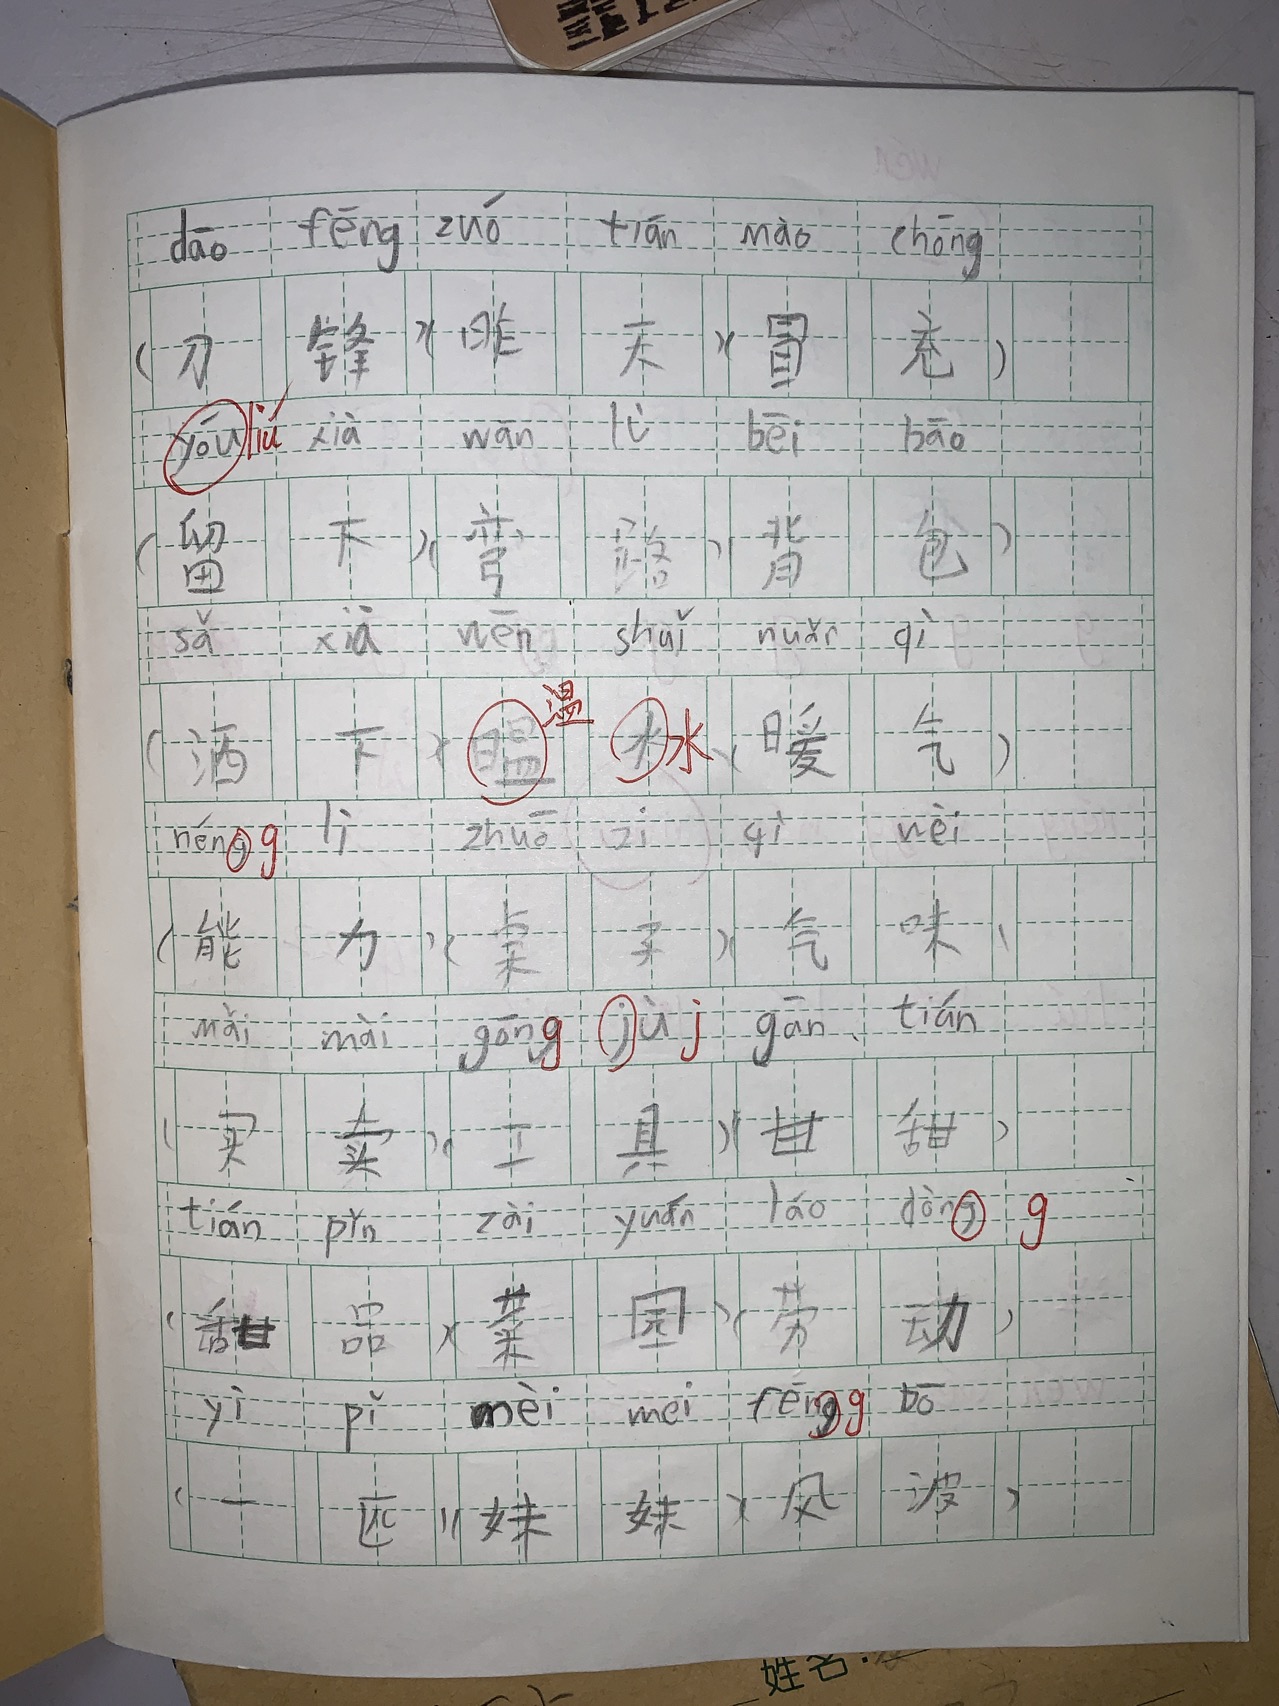 dāo fēng zuó tiān mào chōng
(刀锋)(昨天)(冒充)
yóu liú xià wān lù bēi bāo
(留下)(弯路)(背包)
sǎ xià wēn shuǐ nuǎn qì
温
(洒下)(温水水)(暖气)
néng g lì zhuō zi qì wèi
(能力)(桌子)(气味)
mǎi mài gōng jù j gān tián
(买卖)(工具)(甘甜)
tián pǐn zài yuán láo dòng g
(甜品)(菜园)(劳动)
yì pǐ mèi mei fēng g bō
(一匹)(妹妹)(风波)
姓名: